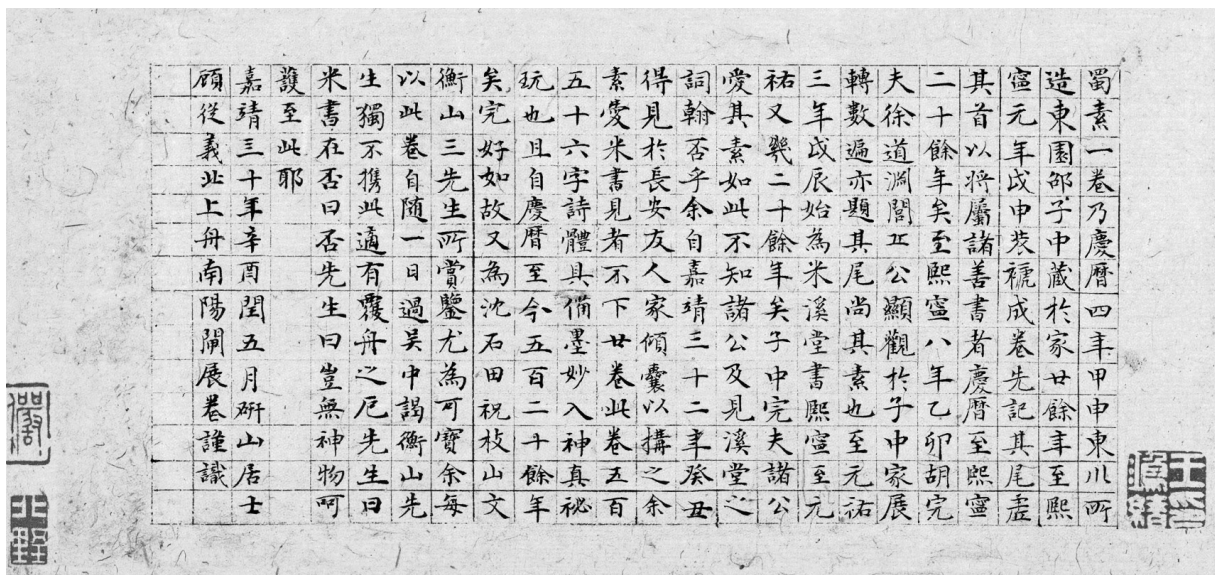 蜀素一卷乃慶曆四年甲申東川所
造東園邵子中藏於家廿餘年至熙
寧元年戊申裝褫成卷先記其尾虛
其首以將屬諸善書者慶曆至熙寧
二十餘年矣至熙寧八年乙卯胡完
夫徐道淵閭丘公顯觀於子中家展
轉數遍亦題其尾尚其素也至元祐
三年戊辰始為米溪堂書熙寧至元
祐又幾二十餘年矣子中完夫諸公
愛其素如此不知諸公及見溪堂之
詞翰否乎余自嘉靖三十二年癸丑
得見於長安友人家傾囊以購之余
素愛米書見者不下廿卷此卷五百
五十六字詩體具備墨妙入神真祕
玩也且自慶曆至今五百二十餘年
矣完好如故又為沈石田祝枝山文
衡山三先生所賞鑒尤為可寶余每
以此卷自隨一日過吳中謁衡山先
生獨不攜此適有覆舟之厄先生曰
米書在否曰否先生曰豈無神物呵
護至此耶
嘉靖三十年辛酉閏五月研山居士
顧從義北上舟南陽閘展卷謹識